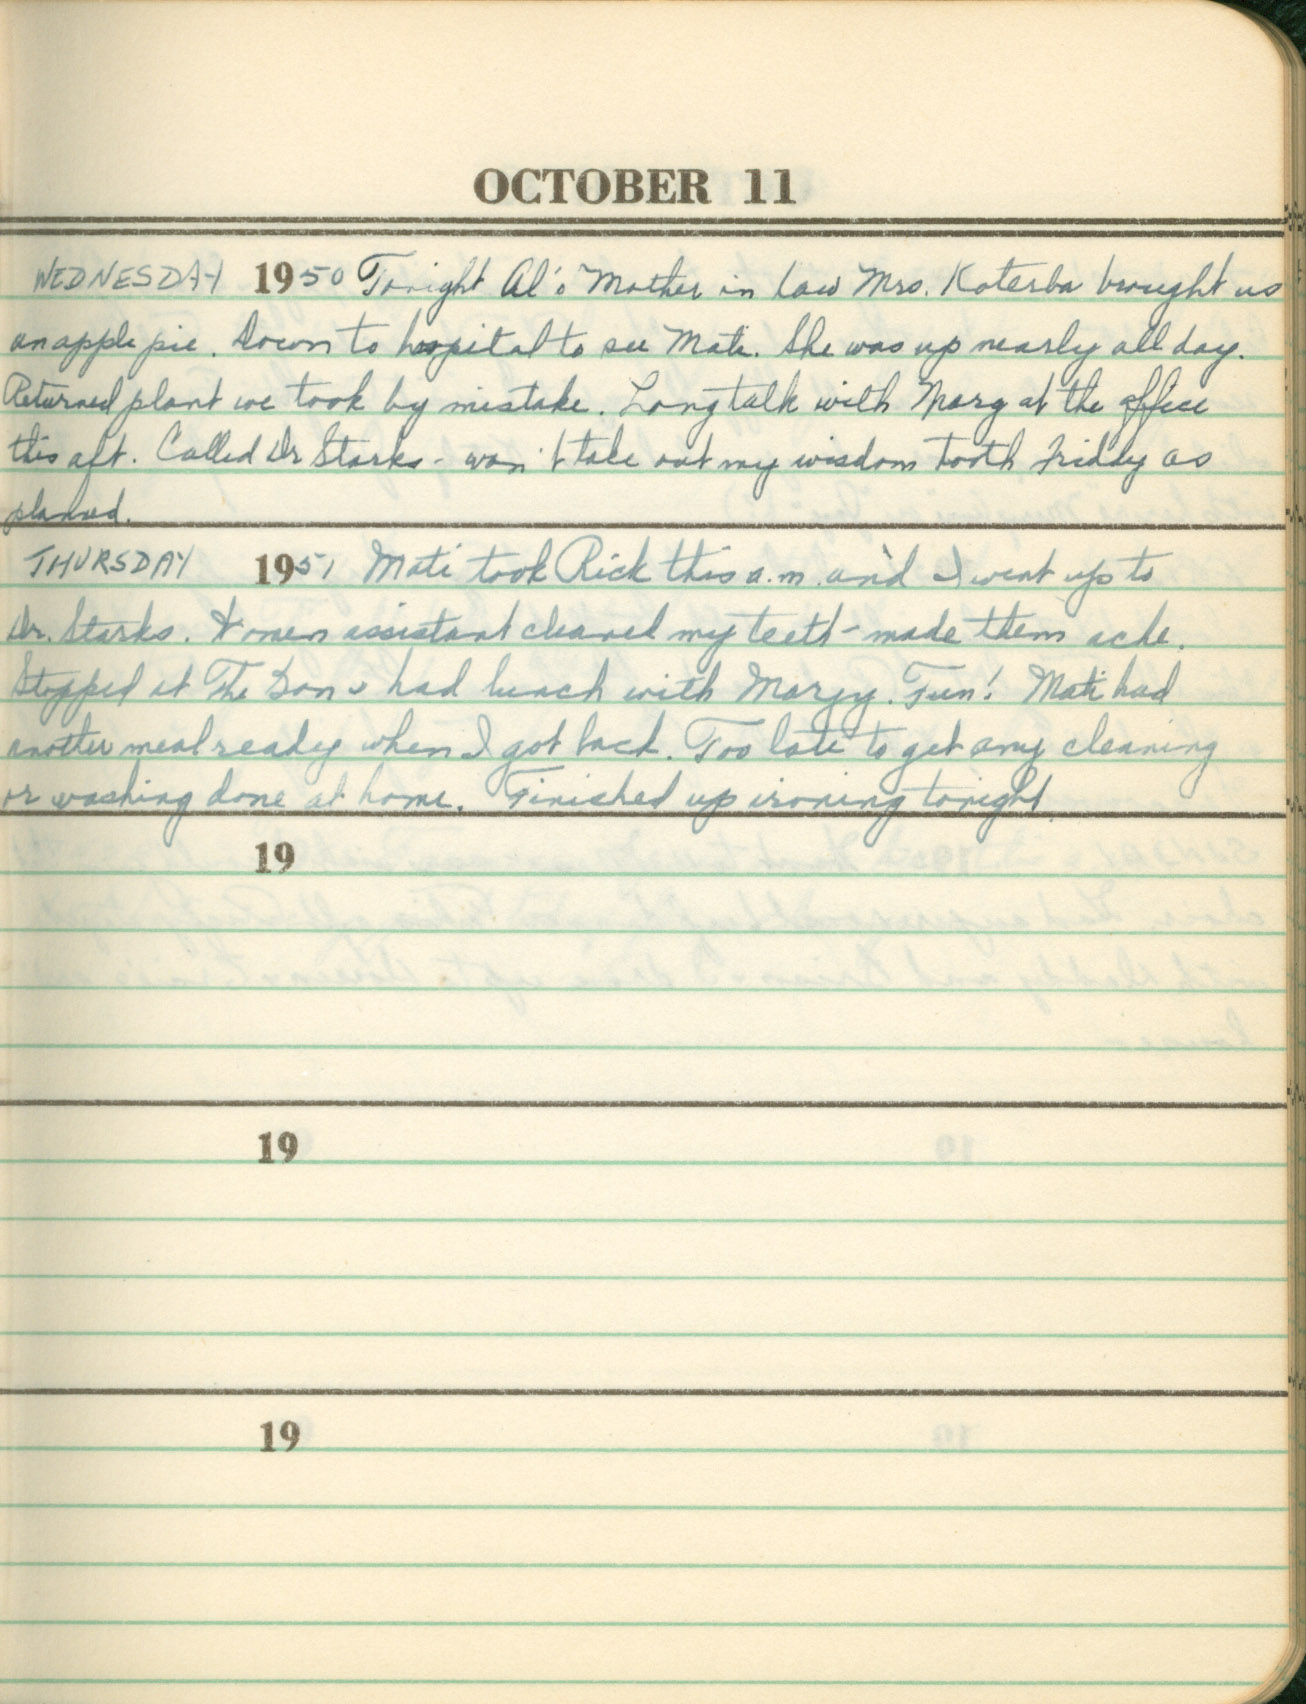 OCTOBER 11
WEDNESDAY 1950 Tonight Al's Mother in law Mrs. Koterba brought us
an apple pie. Down to hospital to see Mati. She was up nearly all day.
Returned plant we took by mistake. Long talk with Marg at the office
this aft. Called Dr Starks - won't take out my wisdom tooth Friday as
planned.
THURSDAY 1951 Mati took Rick this a.m. and I went up to
Dr. Starks. Women assistant cleaned my teeth - made them ache.
Stopped at The Bon & had lunch with Margy. Fun! Mati had
another meal ready when I got back. Too late to get any cleaning
or washing done at home. Finished up ironing tonight
19
19
19